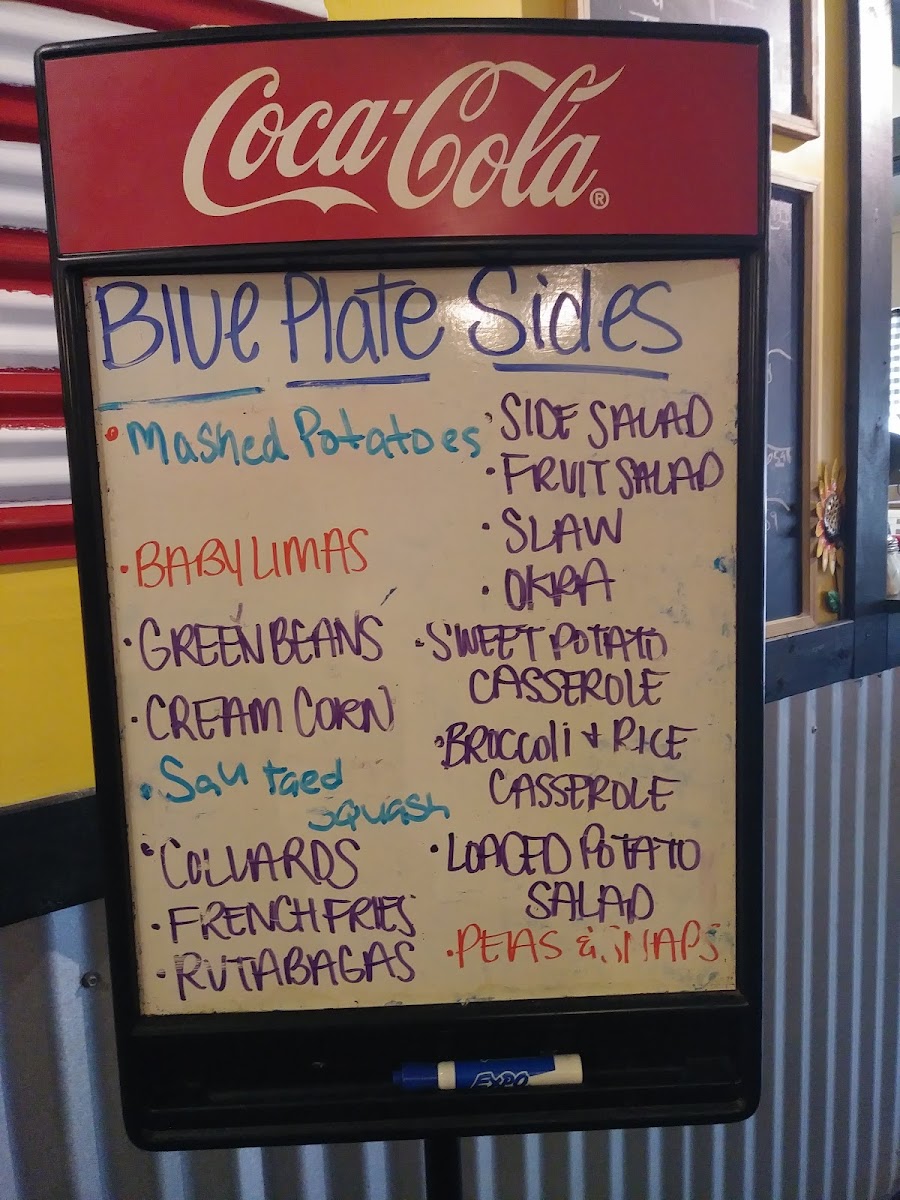 Coca-Cola®
Blue Plate Sides
• Mashed Potatoes
• BABY LIMAS
• GREEN BEANS
• CREAM CORN
• Sautaed
squash
• COLLARDS
• FRENCH FRIES
• RUTABAGAS
• SIDE SALAD
• FRUIT SALAD
• SLAW
• OKRA
• SWEET POTATO
CASSEROLE
• BROCCOLI + RICE
CASSEROLE
• LOADED POTATO
SALAD
• PEAS & SNAPS
EXPO